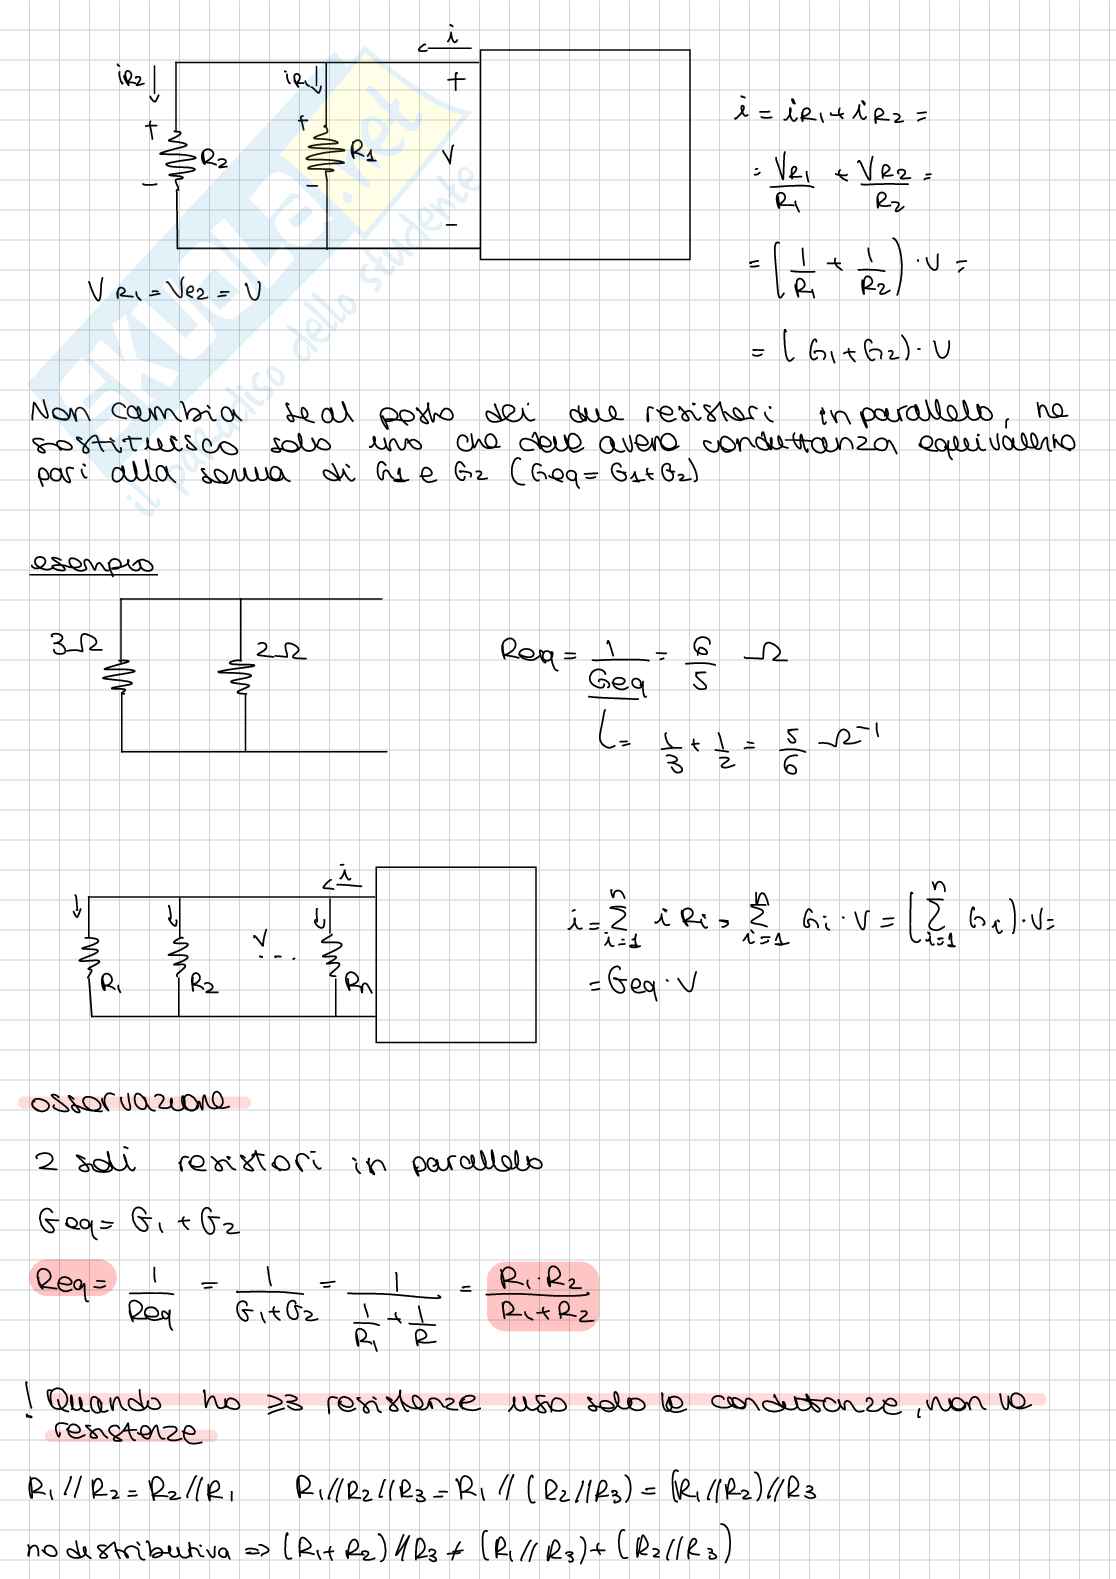 i
iR2
iR1
+
i = iR1 + iR2 =
+
+
R2
R1
V
= VR1/R1 + VR2/R2 =
-
-
-
= (1/R1 + 1/R2) · V =
VR1 = Ve2 = V
= (G1 + G2) · V
SKUOLA.net
il paradiso dello studente
Non cambia se al posto dei due resistori in parallelo, ne
sostituisco solo uno che deve avere conduttanza equivalente
pari alla somma di G1 e G2 (Geq = G1 + G2)
esempio
3Ω
2Ω
Req = 1/Geq = 6/5 Ω
= 1/3 + 1/2 = 5/6 Ω⁻¹
i
V
...
R1
R2
Rn
i = Σ_{i=1}^{n} iRi = Σ_{i=1}^{n} Gi · V = (Σ_{i=1}^{n} Gi) · V =
= Geq · V
osservazione
2 soli resistori in parallelo
Geq = G1 + G2
Req = 1/Req = 1/(G1 + G2) = 1/(1/R1 + 1/R) = R1 · R2/(R1 + R2)
! Quando ho ≥3 resistenze uso solo le conduttanze, non le
resistenze
R1 // R2 = R2 // R1 R1 // R2 // R3 = R1 // (R2 // R3) = (R1 // R2) // R3
no distributiva => (R1 + R2) // R3 ≠ (R1 // R3) + (R2 // R3)